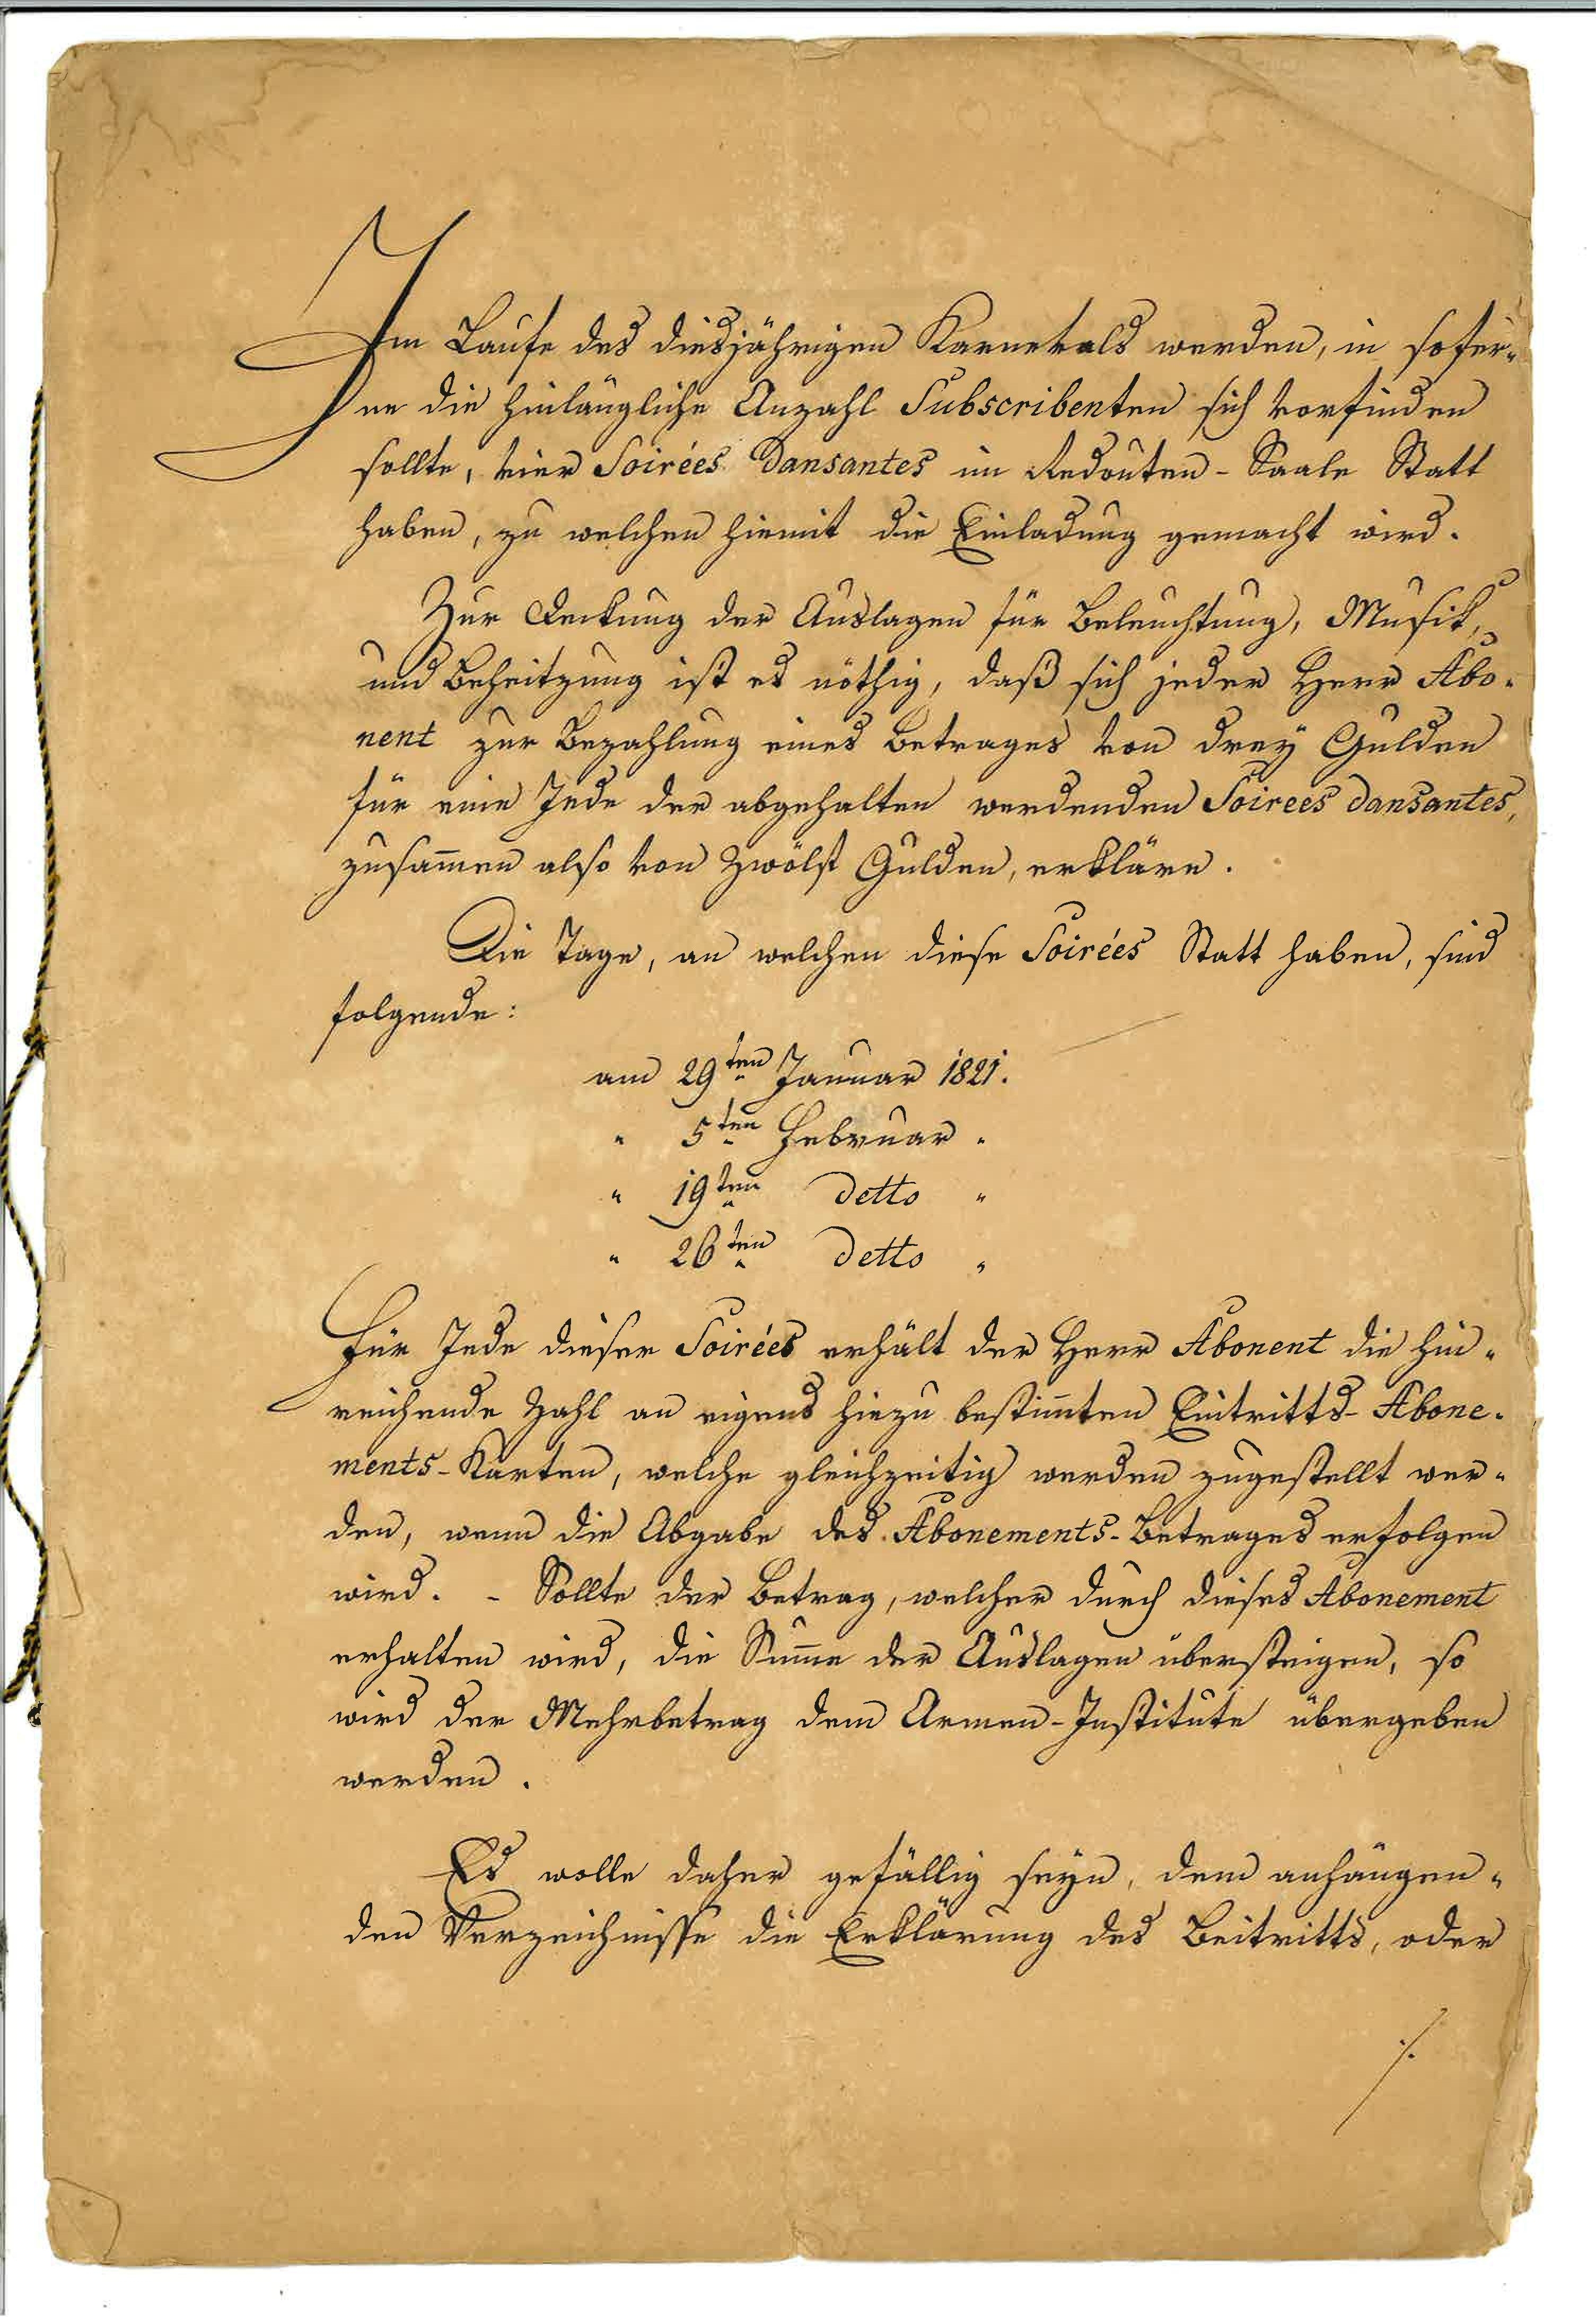 Im Laufe des diesjährigen Karnevals werden, in sofer-
ne die hinlängliche Anzahl Subscribenten sich vorfinden
sollte, vier Soirées dansantes im Redouten-Saale Statt
haben, zu welchen hiemit die Einladung gemacht wird.
Zur Deckung der Auslagen für Beleuchtung, Musik,
und Beheitzung ist es nöthig, daß sich jeder Herr Abo-
nent zur Bezahlung eines Betrages von drey Gulden
für eine Jede der abgehalten werdenden Soirees dansantes,
zusam̄en also von Zwölf Gulden, erkläre.
Die Tage, an welchen diese Soirées Statt haben, sind
folgende:
am 29ten Januar 1821.
" 5ten Februar "
" 19ten detto "
" 26ten detto "
Für Jede dieser Soirées erhält der Herr Abonent die hin-
reichende Zahl an eigens hiezu bestim̄ten Eintritts-Abone-
ments-Karten, welche gleichzeitig werden zugestellt wer-
den, wenn die Abgabe des Abonements-Betrages erfolgen
wird. - Sollte der Betrag, welcher durch dieses Abonement
erhalten wird, die Sum̄e der Auslagen übersteigen, so
wird der Mehrbetrag dem Armen-Institute übergeben
werden.
Es wolle daher gefällig seyn, dem anhängen-
den Verzeichnisse die Erklärung des Beitritts, oder
./.